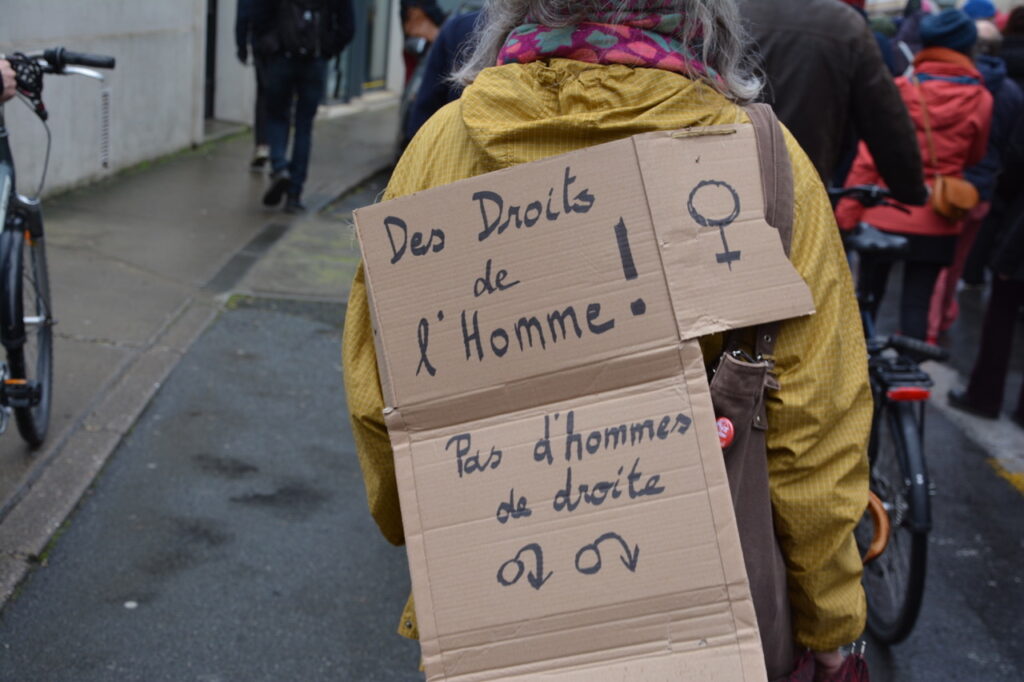 Des Droits
de
l'Homme !
♀
Pas d'hommes
de droite